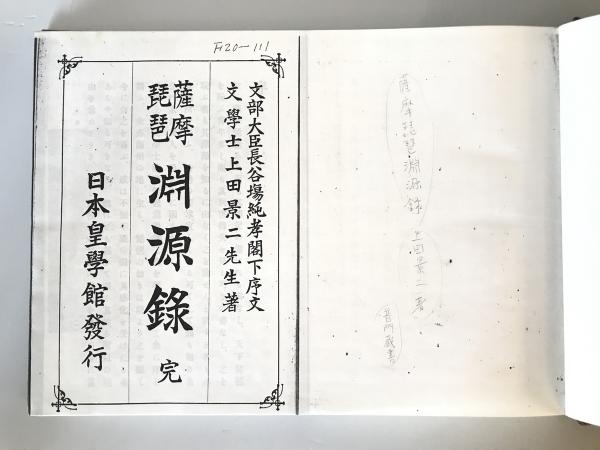 F120-111
文部大臣長谷塲純孝閣下序文
文學士上田景二先生著
薩摩
琵琶
淵源錄 完
日本皇學館發行
薩摩琵琶淵源錄
上田景二著